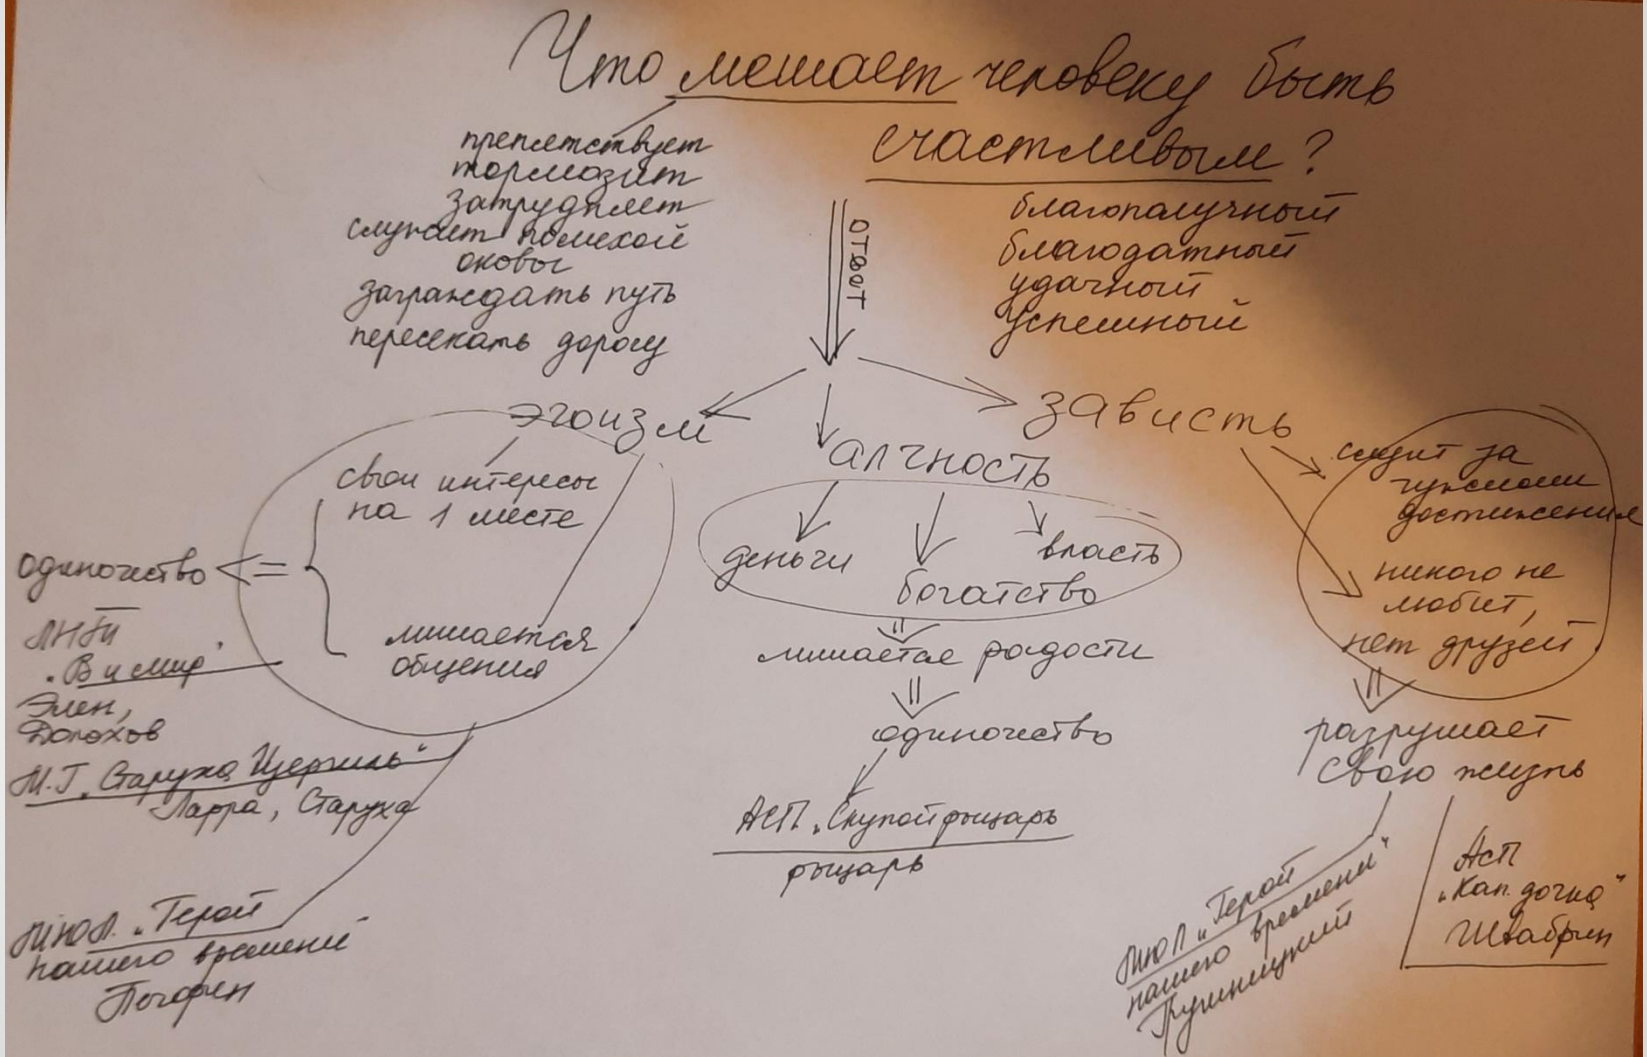 Что мешает человеку быть
счастливым?
препятствует
тормозит
затрудняет
служит помехой
оковы
заграждать путь
пересекать дорогу
ответ
благополучный
благодатный
удачный
успешный
эгоизм
свои интересы
на 1 месте
лишается
общения
одиночество
ЛНТ
"В и мир"
Элен,
Долохов
М.Г. "Старуха Изергиль"
Ларра, Старуха
МЮЛ. "Герой
нашего времени"
Печорин
алчность
деньги
богатство
власть
лишается радости
одиночество
АСП "Скупой рыцарь
рыцарь
зависть
следит за
чужими
достижениями
никого не
любит,
нет друзей
разрушает
свою жизнь
МЮЛ "Герой
нашего времени"
Грушницкий
АСП
"Кап. дочка"
Швабрин